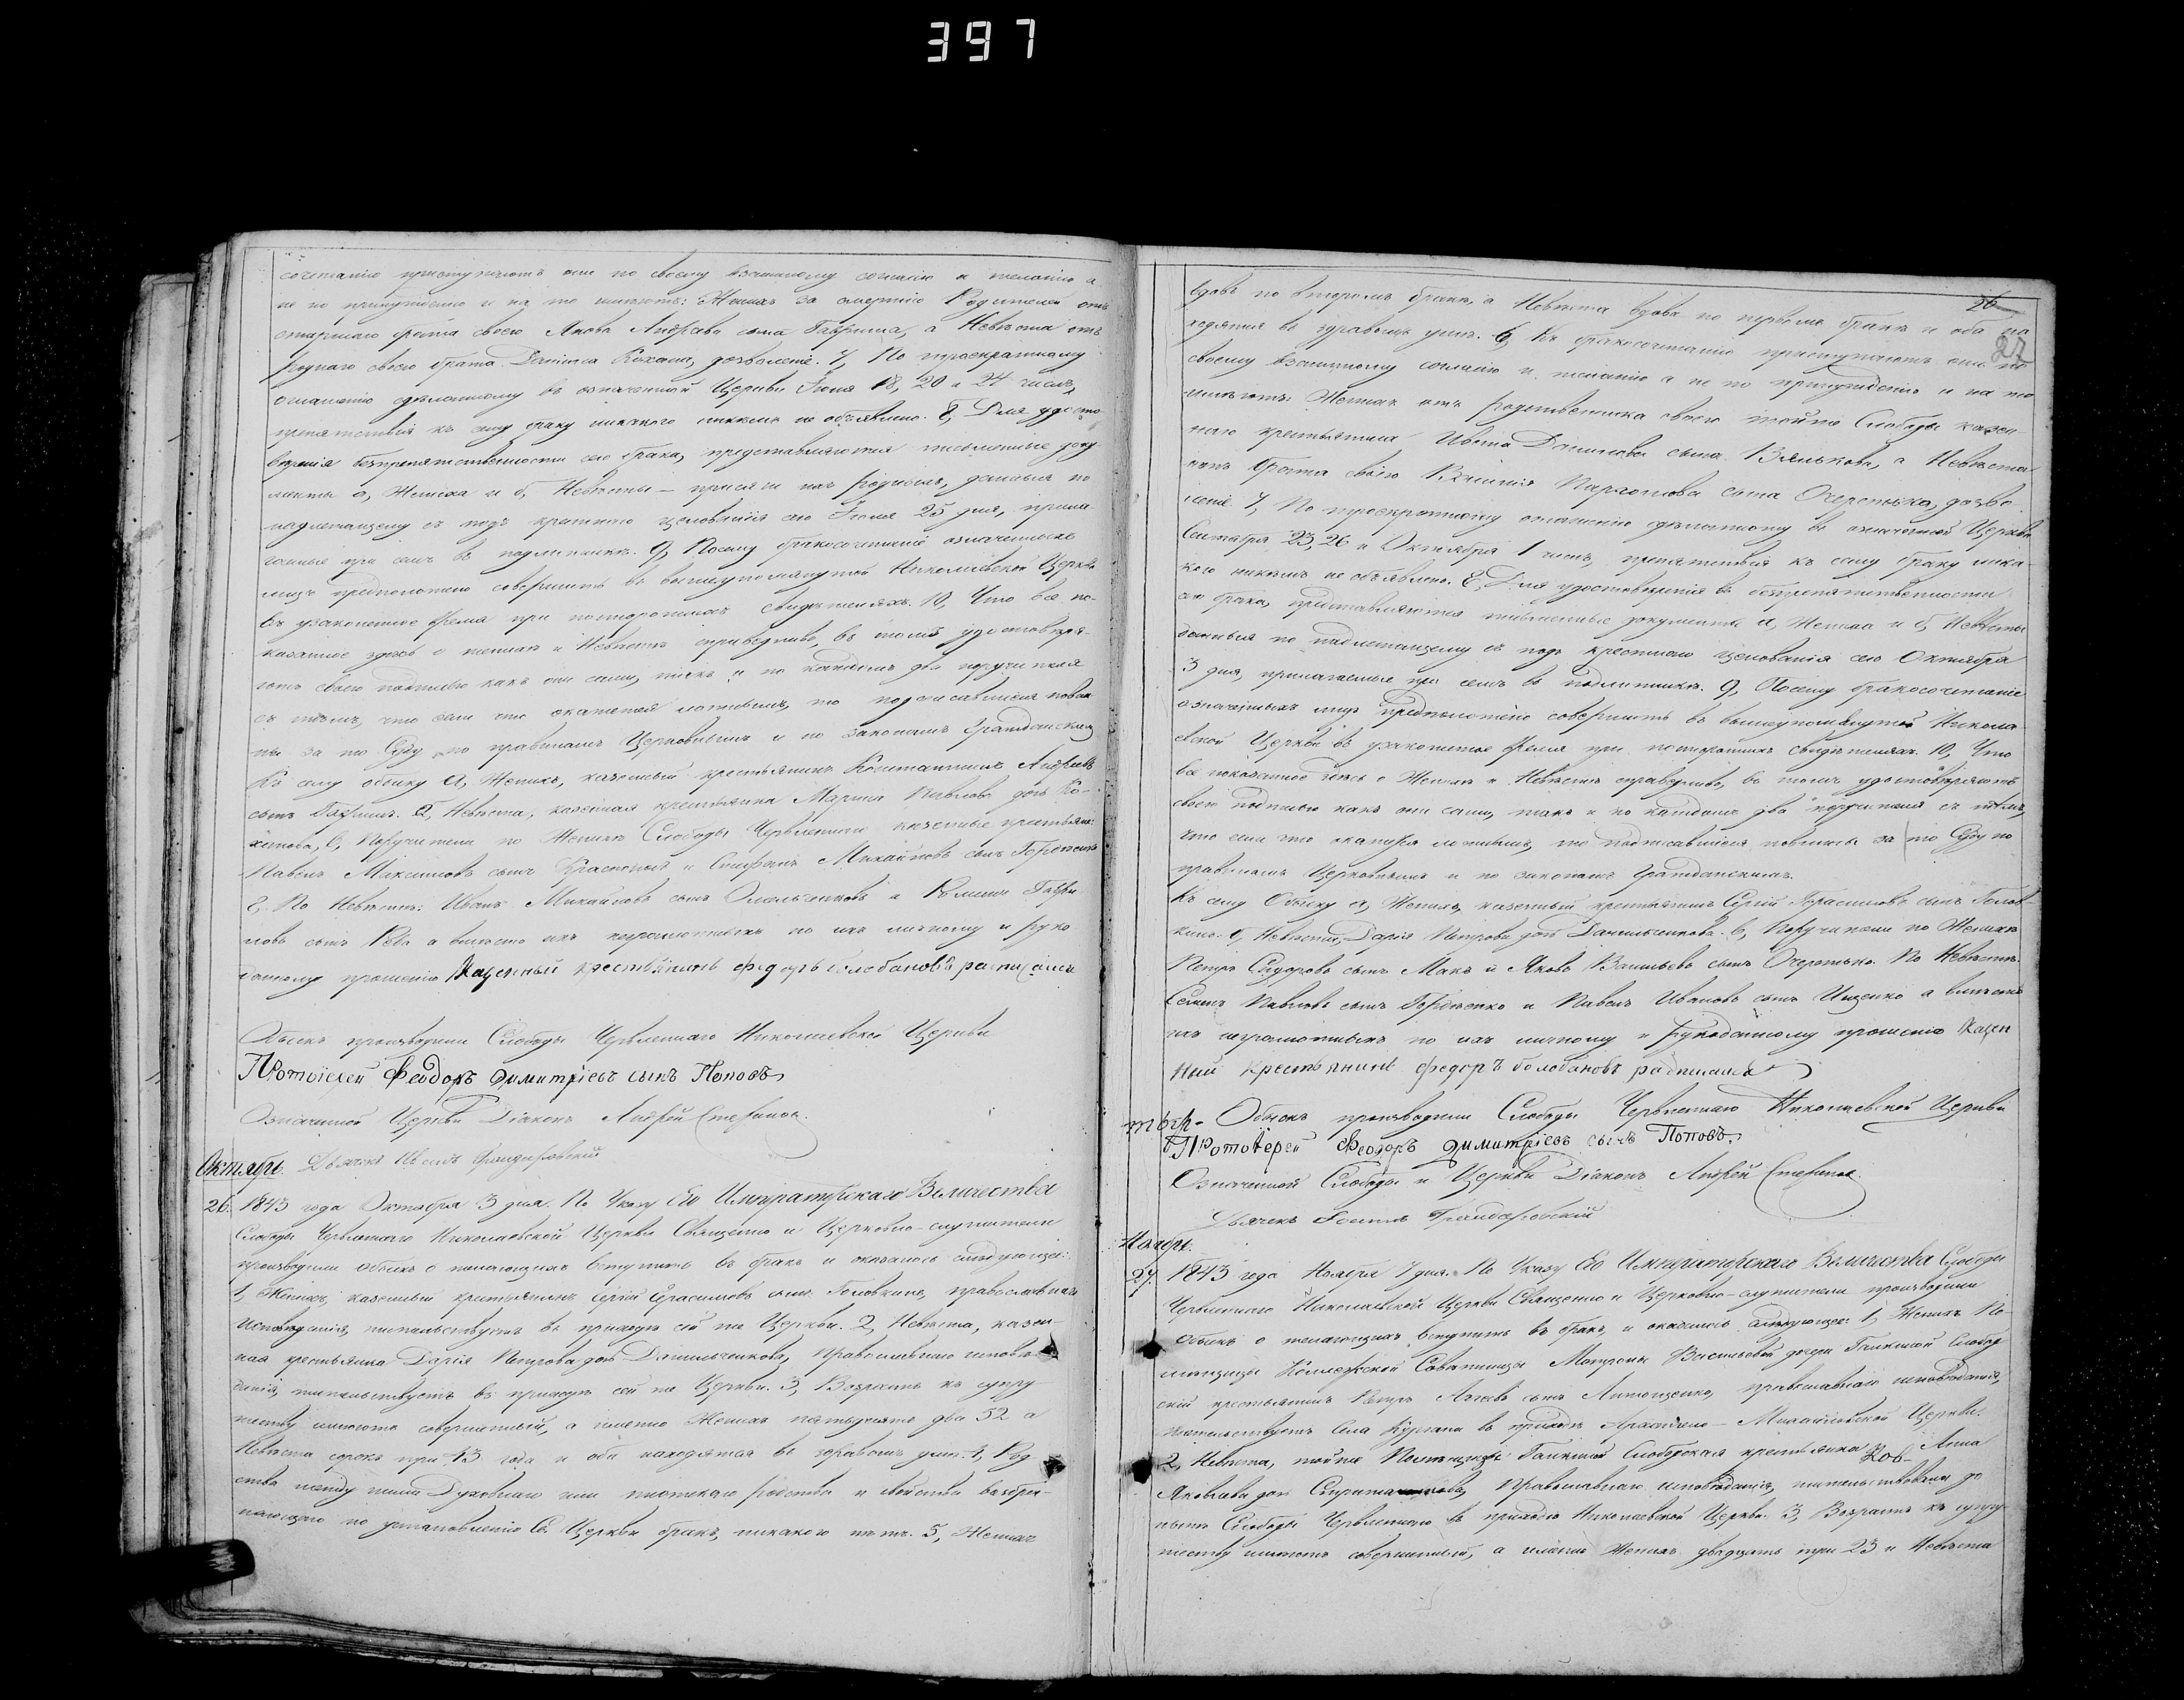 397
сочетанію приступаютъ они по своему взаимному согласію и желанію а
не по принужденію и на то имѣютъ: Женихъ за смертію Родителей отъ
старшаго брата своего Якова Андреева сына Гавриша, а Невѣста отъ
роднаго своего брата Данила Кохана, дозволеніе. 7, По троекратному
оглашенію сдѣланному въ означенной Церкви Іюля 18, 20 и 24 чиселъ,
препятствія къ сему браку никакого никѣмъ не объявлено. 8, Для удосто-
вѣренія безпрепятственности сего брака, представляются письменные доку
менты а, Жениха и б, Невѣсты – присяги ихъ родномъ, данныя по
надлежащему съ подъ крестнаго цѣлованія сего Іюля 25 дня, прила-
гаемые при семъ въ подлинникѣ. 9, Посему бракосочетаніе означенныхъ
лицъ предположено совершить въ вышеупомянутой Николаевской Церкви
въ узаконенное время при постороннихъ свидѣтеляхъ. 10, Что все по-
казанное здѣсь о женихѣ и Невѣстѣ справедливо, въ томъ удостовѣря-
ютъ своею подписью какъ они сами, такъ и по каждомъ два поручителя
съ тѣмъ, что если что окажется ложнымъ, то подписавшіеся повин
ны за то Суду по правиламъ Церковнымъ и по законамъ Гражданскимъ
Къ сему обыску а, Женихъ, казенный крестьянинъ Константинъ Андреевъ
сынъ Гавришъ. б, Невѣста, казенная крестьянка Марина Павлова дочь Ко-
ханова, в, Поручители по Женихѣ Слободы Червленнаго казенные крестьяне:
Павелъ Максимовъ сынъ Красный и Стефанъ Михайловъ сынъ Гордіенко
г, По Невѣстѣ: Иванъ Михайловъ сынъ Омельченковъ и Гаври
ловъ сынъ Рева а вмѣсто ихъ неграмотныхъ по ихъ личному и руко
данному прошенію Казенный крестьянинъ федоръ болобановъ расписался
Обыскъ производили Слободы Червленнаго Николаевской Церкви
Протоіерей Феодоръ Димитріевъ сынъ Поповъ
Означенной Церкви Діаконъ Андрей Стефановъ.
Октябрь. Дьячекъ
26. 1843 года Октября 3 дня. По Указу Его Императорскаго Величества
Слободы Червленнаго Николаевской Церкви Священно и Церковно-служители
производили обыскъ о желающихъ вступить въ бракъ и оказалось слѣдующее:
1, Женихъ, казенный крестьянинъ Сергій Герасимовъ сынъ Головкинъ, православнаго
исповѣданія, жительствуетъ въ приходѣ сей же Церкви. 2, Невѣста, казен
ная крестьянка Дарія Петрова дочь Данильченкова, Православнаго исповѣ
данія, жительствуетъ въ приходѣ сей же Церкви. 3, Возрастъ къ супру
жеству имѣютъ совершенный, а именно Женихъ пятьдесятъ два 52 а
Невѣста сорокъ три 43 года и оба находятся въ здравомъ умѣ. 4, Род
ства между ними Духовнаго или плотскаго родства и свойства возбра-
няющаго по установленію Св. Церкви бракъ, никакого нѣтъ. 5, Женихъ
26
27
вдовъ по второмъ бракѣ, а Невѣста вдова по первомъ бракѣ и оба на
ходятся въ здравомъ умѣ. 6, Къ бракосочетанію приступаютъ они по
своему взаимному согласію и желанію а не по принужденію и на то
имѣютъ: Женихъ отъ родственника своего той же Слободы казен
наго крестьянина Ивана Данилова сына Вялькова, а Невѣста
отъ брата своего Василія сына Очеретька, дозво-
леніе. 7, По троекратному оглашенію сдѣланному въ означенной Церкви
Сентября 23, 26 и Октября 1 чиселъ, препятствія къ сему браку ника-
кого никѣмъ не объявлено. 8, Для удостовѣренія въ безпрепятственности
сего брака, представляются письменные документы а, Жениха и б, Невѣсты
данныя по надлежащему съ подъ крестнаго цѣлованія сего Октября
3 дня, прилагаемые при семъ въ подлинникѣ. 9, Посему бракосочетаніе
означенныхъ лицъ предположено совершить въ вышеупомянутой Никола
евской Церкви въ узаконенное время при постороннихъ свидѣтеляхъ. 10, Что
все показанное здѣсь о Женихѣ и Невѣстѣ справедливо, въ томъ удостовѣряютъ
своею подписью какъ они сами, такъ и по каждомъ два поручителя съ тѣмъ,
что если что окажется ложнымъ, то подписавшіеся повинны за то Суду по
правиламъ Церковнымъ и по законамъ Гражданскимъ.
Къ сему Обыску а, Женихъ, казенный крестьянинъ Сергій Герасимовъ сынъ Голов-
кинъ. б, Невѣста, Дарія Петрова дочь Данильченкова. в, Поручители по Женихѣ
Петръ Сидоровъ сынъ Макъ и Яковъ Васильевъ сынъ Очеретько. По Невѣстѣ.
Семенъ Павловъ сынъ Гордіенко и Павелъ Ивановъ сынъ Ищенко а вмѣсто
ихъ неграмотныхъ по ихъ личному и рукоданному прошенію Казен
ный крестьянинъ федоръ болобановъ расписался
Обыскъ производили Слободы Червленнаго Николаевской Церкви
Протоіерей Феодоръ Димитріевъ сынъ Поповъ
Означенной Слободы и Церкви Діаконъ Андрей Стефановъ.
Дьячекъ
Ноябрь.
27. 1843 года Ноября 7 дня. По Указу Его Императорскаго Величества Слободы
Червленнаго Николаевской Церкви Священно и Церковно-служители производили
обыскъ о желающихъ вступить въ бракъ, и оказалось слѣдующее: 1, Женихъ По-
мѣщицы Коллежской Совѣтницы Матроны Васильевой дочери Слобод
скій крестьянинъ Петръ сынъ Литощенко, православнаго исповѣданія,
жительствуетъ Села Кургана въ приходѣ Архангело-Михайловской Церкви.
2, Невѣста, той же Помѣщицы Слободская крестьянка Анна
Яковлева дочь Православнаго исповѣданія, жительствовала до
нынѣ Слободы Червленнаго въ приходѣ Николаевской Церкви. 3, Возрастъ къ супру
жеству имѣютъ совершенный, а именно Женихъ двадцать три 23 и Невѣста